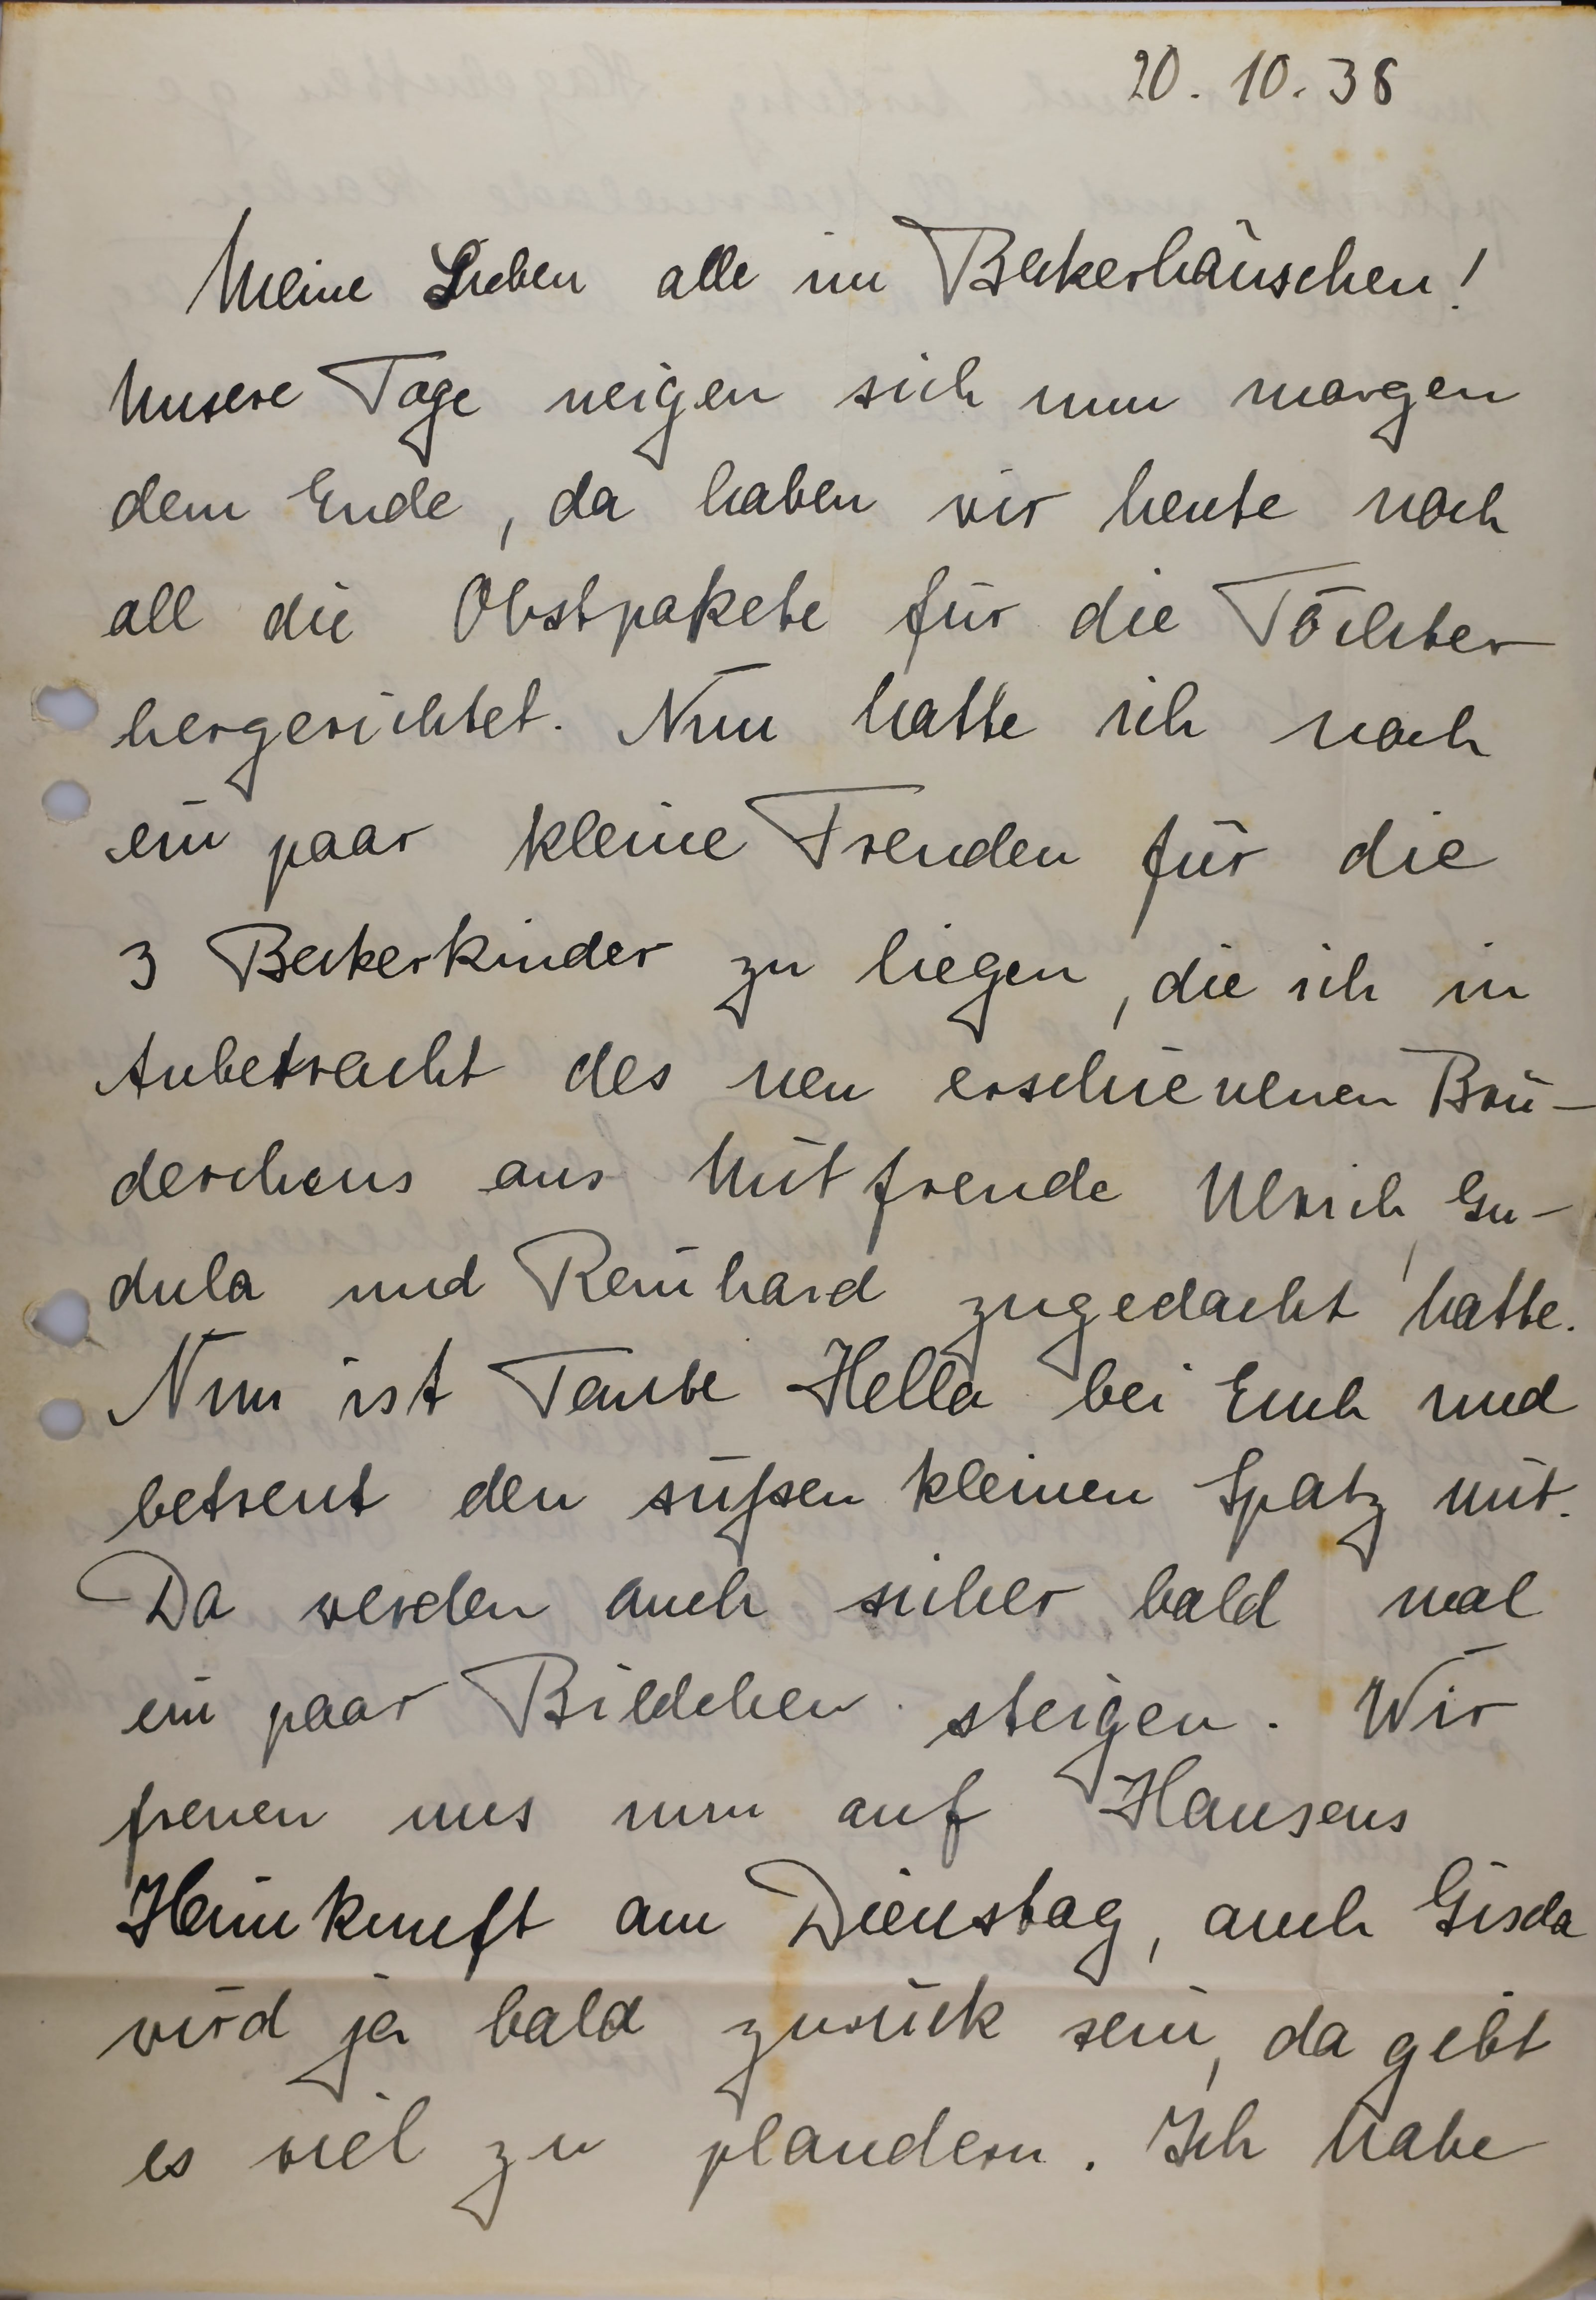 20. 10. 38
Meine Lieben alle im Beckerhäuschen!
Unsere Tage neigen sich nun morgen
dem Ende, da haben wir heute noch
all die Obstpakete für die Töchter
hergerichtet. Nun hatte ich noch
ein paar kleine Freuden für die
3 Beckerkinder zu liegen, die ich in
Anbetracht des neu erschienenen Brü-
derchens aus Mitfreude Ulrich, Gu-
dula und Reinhard zugedacht hatte.
Nun ist Tante Hella bei Euch und
betreut den süßen kleinen Spatz mit.
Da werden auch sicher bald mal
ein paar Bildchen steigen. Wir
freuen uns nun auf Hansens
Heimkunft am Dienstag, auch Gisela
wird ja bald zurück sein, da gibt
es viel zu plaudern. Ich habe